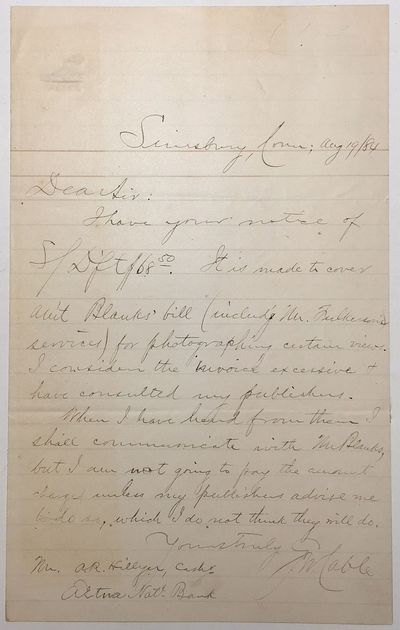 Simsbury, Conn; Aug 19/84
Dear Sir:
I have your notice of
S/ D'ft $68 50. It is made to cover
am't Blanks' bill (includ'g Mr.
services) for photographing certain views.
I consider the invoice excessive +
have consulted my publishers.
When I have heard from them I
shall communicate with Mr Blanks,
but I am not going to pay the amount
charged unless my publishers advise me
to do so, which I do not think they will do.
Yours truly
G. W. Cable
Mr. A.R. Hillyer, Cash.
Aetna Natl. Bank